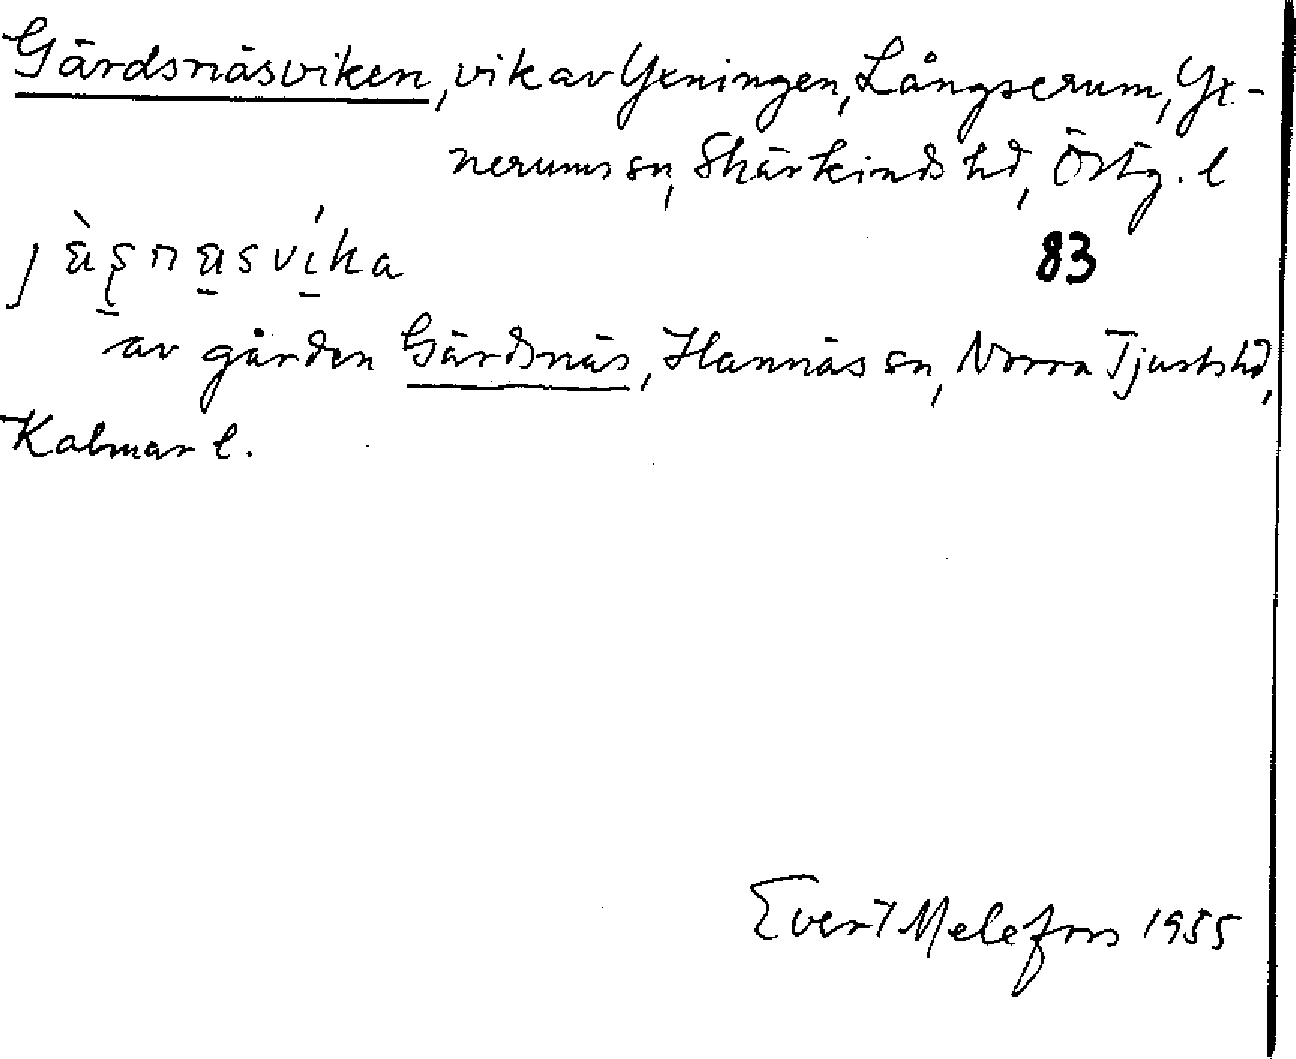 Gärdsnäsviken, vik av Yxningen, Långserum, Yx-
nerums sn, Skärkinds hd, Östg. l
83
av gården Gärdsnäs, Hannäs sn, Norra Tjusts hd,
Kalmar l.
Evert Melefors 1955